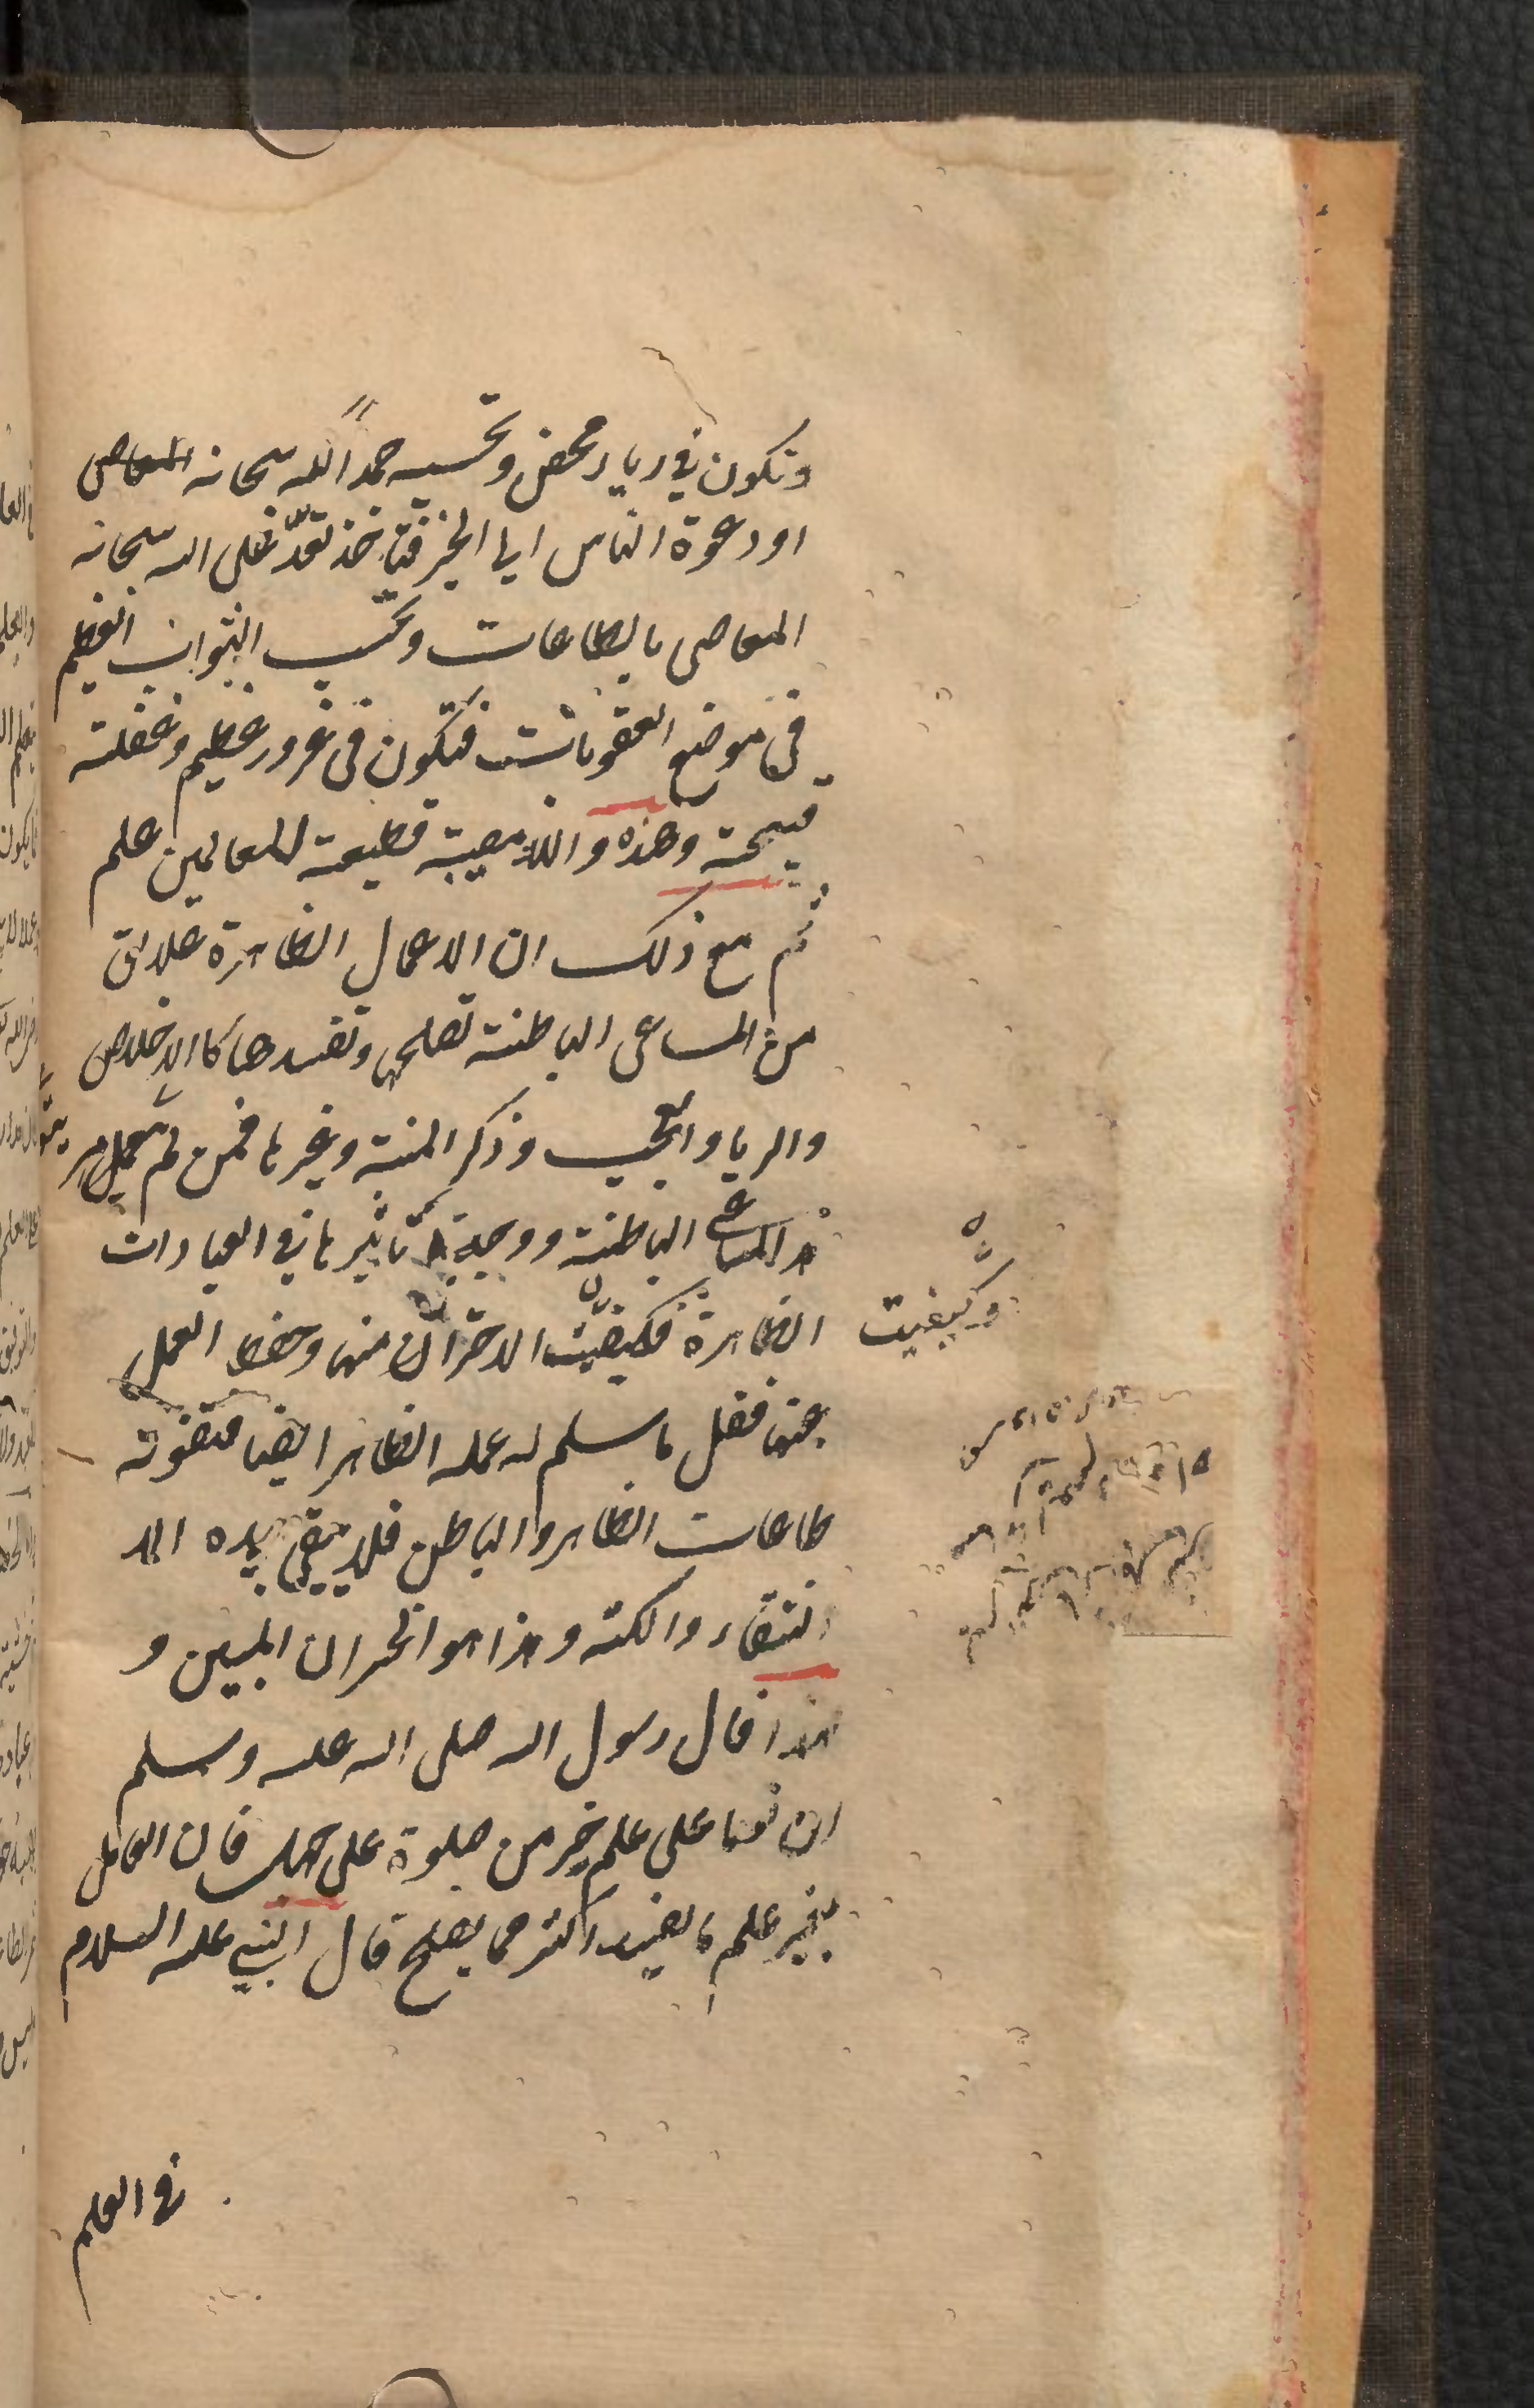 وتكون في رياء محض وتحسبه حمدا لله سبحانه
او دعوة الناس الى الخير فتاخذ تعدّ على الله سبحانه
المعاصى بالطاعات وتحسب الثواب العظيم
فى موضع العقوبات فتكون فى غرور عظيم وغفلته
قبيحة وهذه والله مصيبة فظيعة للعالمين علم
ثم مع ذلك ان الاعمال الظاهرة علائق
من المساعى الباطنة تصلحها وتفسدها كالاخلاص
والريا والعجب وذكر المنة وغيرها فمن لم يعلم
هذه المساعى الباطنة ووجه تأثيرها فى العبادات
الظاهرة فكيفيّت الاحتراز منها وحفظ العمل
وكيفيت
عنها فقل ما سلم له عمله الظاهر ايضا فتفوته
طاعات الظاهر والباطن فلا يبقى بيده الا
الشقاء والكد وهذا هو الخسران المبين و
لهذا قال رسول الله صلى الله عليه وسلم
ان نوما على علم خير من صلوة على جهل فان العامل
بغير علم ما يفسد اكثر مما يصلح قال النبي عليه السلام
فى العلم